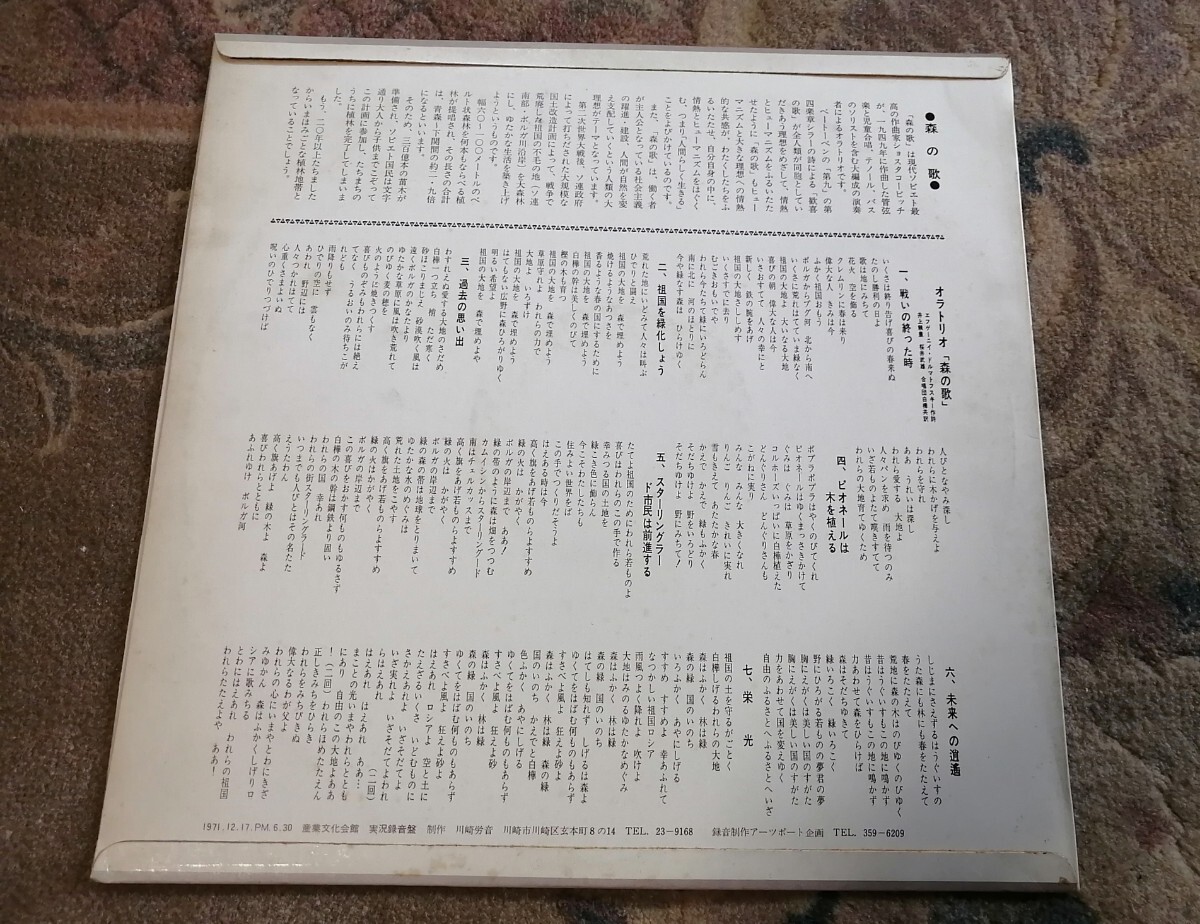 ●森の歌●
「森の歌」は現代ソビエト最
高の作曲家ショスタコービッチ
が、一九四九年に作曲した管弦
楽と児童合唱、テノール、バス
のソリストを含む大編成の演奏
者によるオラトリオです。
ベートーベンの「第九」の第
四楽章シラーの詩による「歓喜
の歌」が全人類が同胞としてい
だきあう理想をめざして、情熱
とヒューマニズムをふるいたた
せたように「森の歌」もヒュー
マニズムと大きな理想への情熱
的な共感が、わたくしたちをふ
るいたたせ、自分自身の中に、
情熱とヒューマニズムをはぐく
む、つまり「人間らしく生きる」
ことをよびかけているのです。
また、「森の歌」は、働く者
が主人公となっている社会主義
の躍進・建設、人間が自然を変
え支配していくという人類の大
理想がテーマとなっています。
第二次世界大戦後、ソ連政府
によって打ちだされた大規模な
国土改造計画によって、戦争で
荒廃した祖国の不毛の地(ソ連
南部・ボルガ川沿岸)を大森林
にし、ゆたかな生活を築きあげ
ようというものです。
幅六〇~一〇〇メートルのベ
ルト状森林を何本もならべる植
林が提唱され、その長さの合計
は、青森―下関間の約二・九倍
になるといいます。
そのため、三百億本の苗木が
準備され、ソビエト国民は文字
通り大人から子供までこぞって
この計画に参加し、たちまちの
うちに植林を完了してしまいま
した。
もう、二〇年以上たちました
からいまはみごとな植林地帯と
なっていることでしょう。
オラトリオ「森の歌」
エフゲーニイ・ドルマトフスキー作詩
井上頼豊 桜井武雄 合唱団白樺共訳
一、戦いの終った時
いくさは終り告げ喜びの春来ぬ
たのし勝利の日よ
歌は地にみちて
花火 空を飾る
クレムリンに春は来り
偉大な人 きみは今
ふかく祖国おもう
ボルガからブグ河 北から南へ
いくさに荒れはてていま緑なく
祖国の大地よ 大いなる大地
喜びの朝 偉大な人は今
いさおすてて 人々の幸にと
新しく 鉄の腕をあげ
祖国の大地さししめす
いくさすでに去り
むごきおもいでや
われらかたちて緑にいろどらん
南に北に 河のほとりに
今や緑なす森は ひらけゆく
二、祖国を緑化しよう
荒れた地にいどみて人々は叫ぶ
ひでりと闘え
祖国の大地を 森で埋めよう
焼けるようなあつさを
香るような春の国にするために
祖国の大地を 森で埋めよう
白樺の幹は美しくのびて
樫の木も育つ
祖国の大地を 森で埋めよう
草原守れよ われらの力で
大地よ いろずけ
祖国の大地を 森で埋めよう
はてもない広野に森ひろがりゆく
明るい希望よ
祖国の大地を 森で埋めよや
三、過去の思い出
わすれえぬ愛する大地のさだめ
白樺一つ立ち 梢 ただ寒く
砂ほこりまじえ 砂漠吹く風は
遠くボルガのかなたより
ゆたかな草原に風は吹き荒れて
のびゆく麦の穂を
火のように焼きつくす
喜びものぞみもわれらには絶え
てなく うるおいのみ待ちこが
れども
雨降りもせず
ひでりの空に 雲もなく
あわれ 野辺には
人々つかれはてて
心重くさまよいぬ
呪いのひでりつづけば
人びとなやみ深し
われらに木かげを与えよ
われらを守れ
ああ うれいは深し
われら愛する 大地よ
人々パンを求め 雨を待つのみ
いざ若ものよたて嘆きすてて
われらの大地育てゆくため
四、ピオネールは
木を植える
ポプラポプラはやくのびてくれ
ピオネールはゆくまっさきかけて
ぐみは ぐみは 草原をかざり
コルホーズいっぱいに白樺植えた
どんぐりさん どんぐりさんも
こがねに実り
みんな みんな 大きくなれ
りんご りんご きれいに実れ
雪もきえて あたたかな春
かえで かえで 緑もふかく
そだちゆけよ 野をいろどり
そだちゆけよ 野にみちて!
五、スターリングラー
ド市民は前進する
たてよ祖国のためにわれら若ものよ
喜びはわれらのこの手で作る
幸みつる国の土地を
緑こき色に飾らん
今こそわたしたちも
住みよい世界をば
この手でつくりだそうよ
はえある時は今
高く旗をあげ若ものらよすすめ
緑の火は かがやく
ボルガの岸辺まで ああ!
緑の帯のように森は畑をつつむ
カムインからスターリングード
南はチェルカッスまで
高く旗をあげ若ものらよすすめ
緑の火は かがやく
ボルガの岸辺まで
緑の森の帯は地球をとりまいて
ゆたかな水のめぐみは
荒れた土地をこやす
高く旗をあげ若ものらよすすめ
緑の火はかがやく
ボルガの岸辺まで
この喜びをおかす何ものもゆるさず
白樺の木の幹は鋼鉄より固い
われらの国 幸あれ
われらの街スターリングラード
いつまでも人びとはその名たた
えうたわん
高く旗あげよ 緑の木よ 森よ
喜びわれらとともに
あふれゆけ ボルガ河
六、未来への逍遥
しじまにさえずるはうぐいすの
うたごえ山にも林にも春をたたえて
春をたたえて
荒地に森の木はのびゆくのびゆく
昔はうぐいすもこの地に鳴かず
昔はうぐいすもこの地に鳴かず
力あわせて森をひらけば
森はそだちゆきて
緑いろこく 緑いろこく
野にひろがる若ものの夢君の夢
胸にえがくは美しい国のすがた
胸にえがくは美しい国のすがた
力をあわせて国を変えゆく
自由のふるさとへふるさとへいざ
七、栄光
祖国の土を守るがごとく
白樺しげるわれらの大地
森はふかく 林は緑
森の緑 国のいのち
いろふかく あやにしげる
すすめ すすめよ 幸あふれて
なつかしい祖国ロシア
雨風つよく降れよ 吹けよ
大地はみのるゆたかなめぐみ
森の緑 国のいのち
はてしも知れず しげるは森よ
ゆくてをはばむ何ものもあらず
すさべよ風よ 狂えよ砂よ
森はふかく 林は緑 森の緑
国のいのち かえでと白樺
色ふかく あやにしげる
ゆくてをはばむ何ものもあらず
すさべよ風よ 狂えよ砂よ
森はふかく 林は緑
森の緑 国のいのち
ゆくてをはばむ何ものもあらず
すさべよ風よ 狂えよ砂よ
はえあれ ロシアよ 空と土に
たえざるいくさ いどむものに
さかえあれよ いざそだてよ
いざ実れよ いざそだてよわれ
らはえあれ (二回)
はえあれ はえあれ ああ…
まことの光いまやわれらととも
にあり 自由のこの大地よああ
!(二回) われらほめたたえん
正しきみちをひらき
われらをみちびきぬ
偉大なるわが父よ
われらの心にいまやとわにきざ
みゆかん 森はふかくしげりロ
シアに歌みちる
とわにはえあれ われらの祖国
われらたたえよや ああ!
1971.12.17.PM.6.30 産業文化会館 実況録音盤 制作 川崎労音 川崎市川崎区玄本町8の14 TEL. 23-9168 録音制作アーツポート企画 TEL. 359-6209